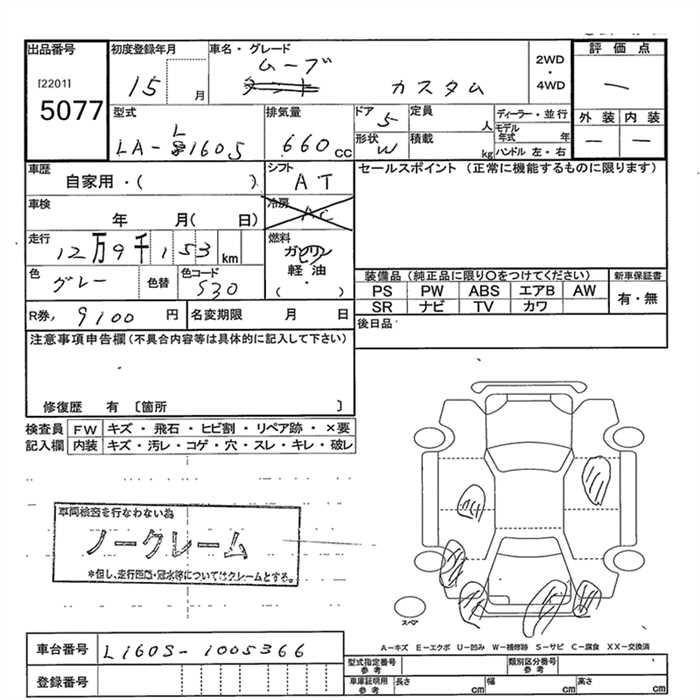 出品番号 初度登録年月 車名・グレード 2WD・4WD 評価点
[2201] 5077
15 月 ムーブ カスタム ー
型式 排気量 ドア 5 定員 人 ディーラー・並行 外装 内装
LA-L160S 660cc 形状 W 積載 kg モデル年式 年 ハンドル 左・右 ー ー
車歴 シフト セールスポイント (正常に機能するものに限ります)
自家用・( ) AT
車検 冷房 AC
年 月( 日)
走行 燃料
12万9千153km ガソリン
軽油
・
( )
色 グレー 色替 色コード S30
装備品(純正品に限り○をつけてください) 新車保証書
PS PW ABS エアB AW 有・無
SR ナビ TV カワ
R券, 9100 円 名変期限 月 日 後日品
注意事項申告欄(不具合内容等は具体的に記入して下さい)
修復歴 有 〔箇所 〕
検査員 FW キズ・飛石・ヒビ割・リペア跡・×要
記入欄 内装 キズ・汚レ・コゲ・穴・スレ・キレ・破レ
車両検査を行なわない為
ノークレーム
*但し、走行距離・冠水等についてはクレームとする。
スペア
A―キズ E―エクボ U―凹み W―補修跡 S―サビ C―腐食 XX―交換済
車台番号 L160S-1005366
型式指定番号 参考 類別区分番号 参考
登録番号 車庫証明用 参考 長さ cm 幅 cm 高さ cm